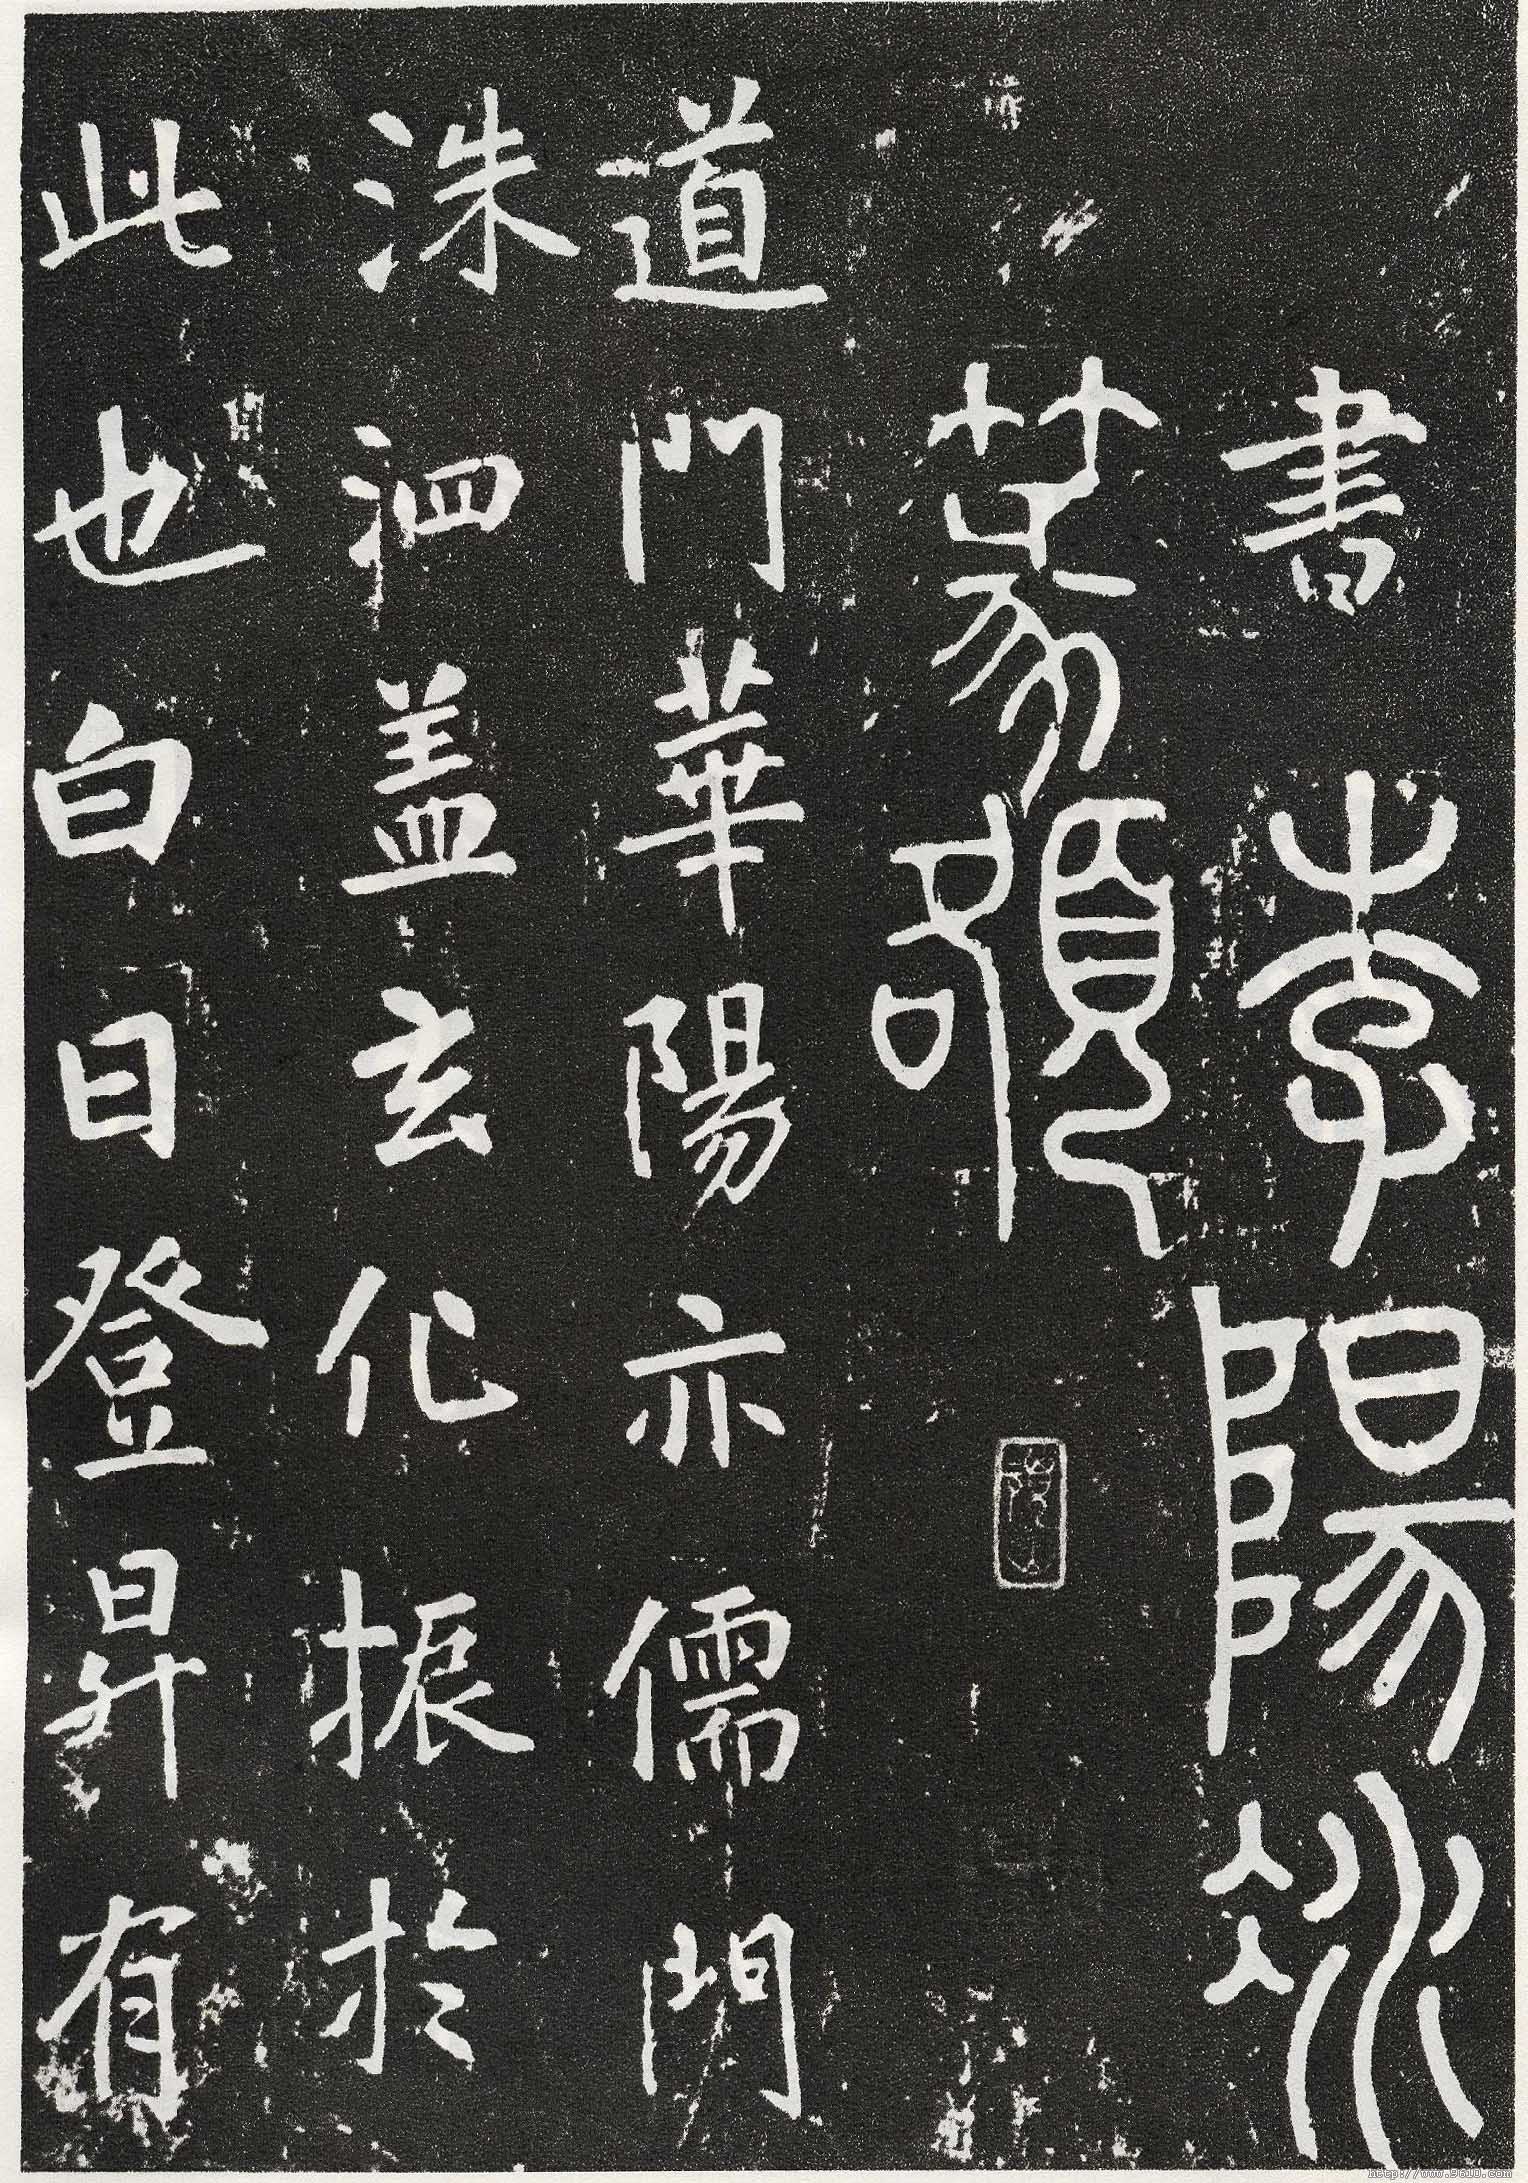 書李陽冰
篆額
道門華陽亦儒門
洙泗盖玄化振於
此也白日登昇有
http://www.9610.com